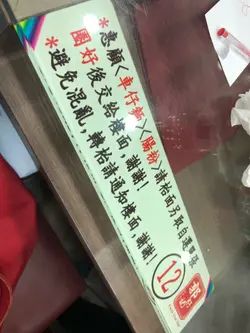 *惠顧<車仔麵><腸粉>請枱面另取自選單
圈好後交給樓面，謝謝！
*避免混亂，轉枱請通知樓面，謝謝！
12